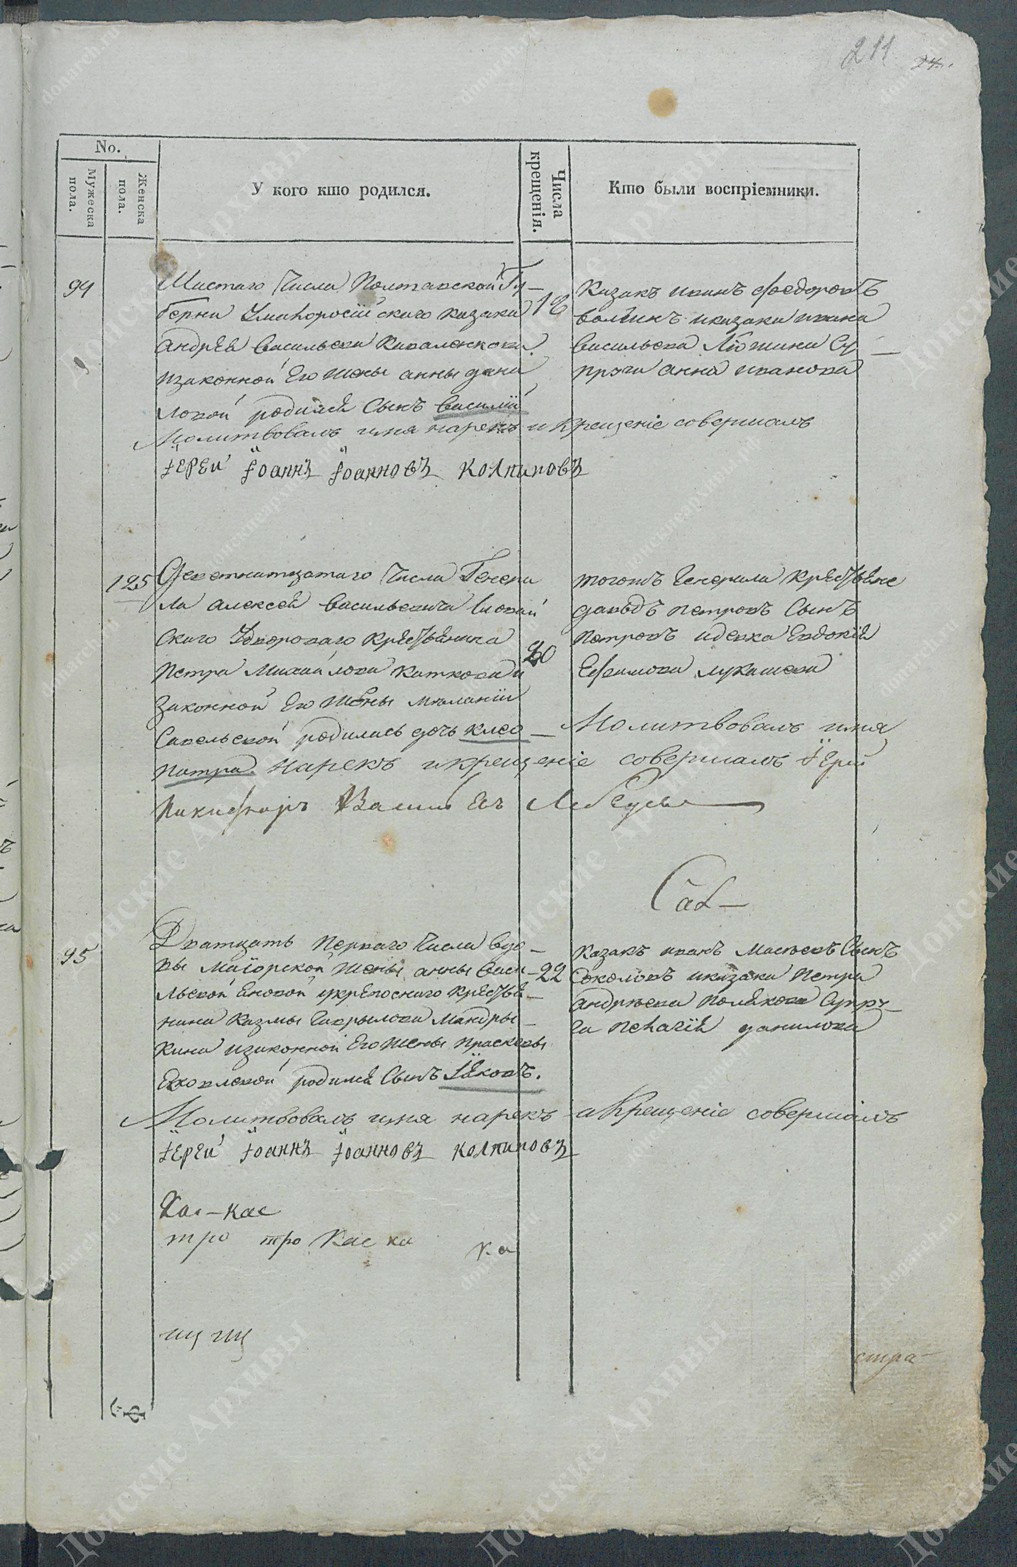 211
24.
No.
Мужеска пола.
Женска пола.
У кого кто родился.
Числа крещенія.
Кто были воспріемники.
94
Шистаго Числа Полтавской Гу-
берни Умалоросiйскаго казака
Андрея Васильева Коваленкова
изаконной Его жены анны дани
ловой родился Сынъ Василiй
18
Казакъ иванъ Федоровъ
иказака ивана
Васильева Су-
пруги анна иванова
Молитвовалъ имя нарекъ и крещенiе совершалъ
Iерей Iоаннъ Iоанновъ Колпиковъ
125
Деветнатцатаго Числа Генера
ла алексея Васильевича Иловай
скаго Дворовaго крестьянина
Петра Михайлова Каткова и
законной Его жены маланiи
Савельевой родилась дочь Клео
патра
20
тогожъ Генерала крестьяне
давыдъ петровъ Сынъ
Петровъ идевка Евдокiя
Ефимова лукашева
Молитвовалъ имя
нарекъ икрещенiе совершалъ Iерей
Никифоръ Васильевъ Лебедевъ
Саб-
95
Дватцать перваго Числа вдо-
вы Маiорской жены анны Васи-
льевой Ековой укрепоснаго крестья-
нина Казмы Гаврылова Мандры-
кина изаконной Его жены прасковьи
Яковлевой родился Сынъ Iяковъ.
22
Казакъ иванъ Сынъ
Соколовъ иказака Петра
Андреева Полякова Супру-
га пелагiя данилова
Молитвовалъ имя нарекъ а Крещенiе совершалъ
Iерей Iоаннъ Iоанновъ Колпиковъ
Кас-кас
тро тро Кас ка
ка
щ щ
стра-
Донские Архивы
donarch.ru
донскиеархивы.рф